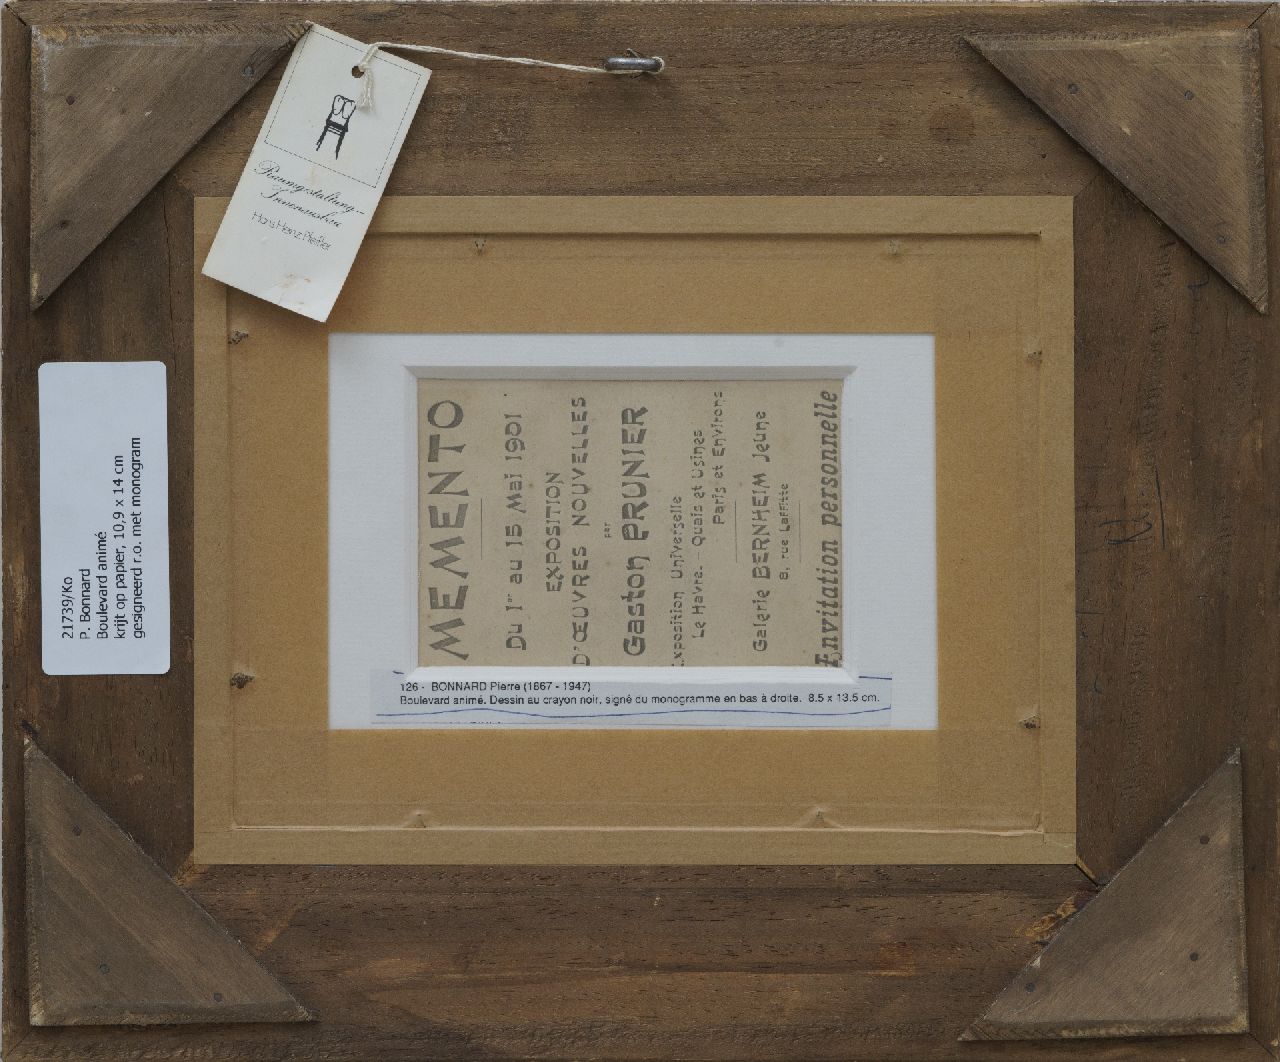 Raumgestaltung-
Innenausbau
Hans Heinz Pfeifer
21739/Ko
P. Bonnard
Boulevard animé
krijt op papier, 10,9 x 14 cm
gesigneerd r.o. met monogram
MEMENTO
Du 1er au 15 Mai 1901
EXPOSITION
D'ŒUVRES NOUVELLES
par
Gaston PRUNIER
Exposition Universelle
Le Havre. Quais et Usines
Paris et Environs
Galerie BERNHEIM Jeune
8, rue Laffitte
Invitation personnelle
126 - BONNARD Pierre (1867 - 1947)
Boulevard animé. Dessin au crayon noir, signé du monogramme en bas à droite. 8.5 x 13.5 cm.